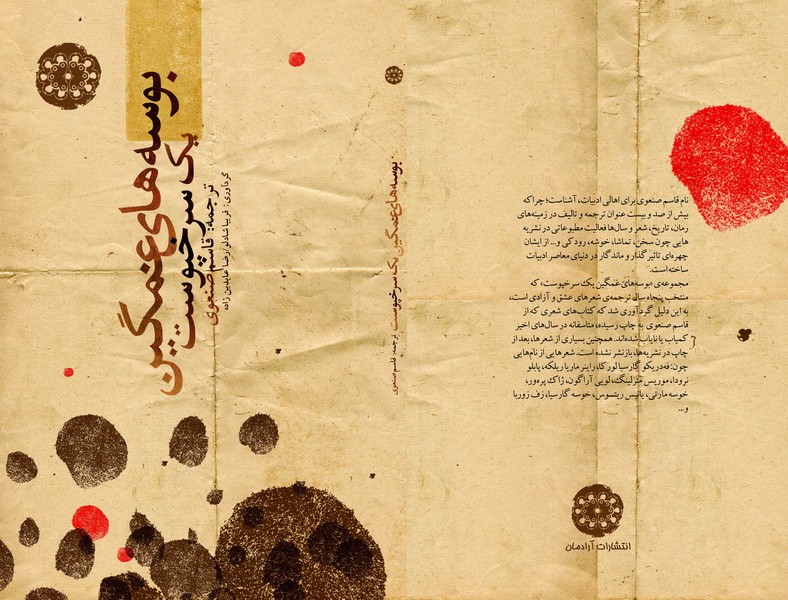 بوسه‌های غمگین
یک سرخپوست
ترجمه: قاسم صنعوی
گردآوری: فریبا شادلو/رضا عابدین زاده
بوسه‌های غمگین یک سرخپوست ترجمه: قاسم صنعوی
نام قاسم صنعوی برای اهالی ادبیات، آشناست؛ چرا که
بیش از صد و بیست عنوان ترجمه و تالیف در زمینه‌های
رمان، تاریخ، شعر و سال‌ها فعالیت مطبوعاتی در نشریه
هایی چون سخن، تماشا، خوشه، رودکی و... از ایشان
چهره‌ای تاثیرگذار و ماندگار در دنیای معاصر ادبیات
ساخته است.
مجموعه‌ی «بوسه‌های غمگین یک سرخپوست» که
منتخب پنجاه سال ترجمه‌ی شعرهای عشق و آزادی است،
به این دلیل گردآوری شد که کتاب‌های شعری که از
قاسم صنعوی به چاپ رسیده، متاسفانه در سال‌های اخیر
کمیاب یا نایاب شده‌اند. همچنین بسیاری از شعرها، بعد از
چاپ در نشریه‌ها، بازنشر نشده است. شعرهایی از نام‌هایی
چون: فدریکو گارسیا لورکا، راینر ماریا ریلکه، پابلو
نرودا، موریس مترلینگ، لویی آراگون، ژاک پره‌ور،
خوسه مارتی، یانیس ریتسوس، خوسه گارسیا، زف زوربا
و...
انتشارات آرادمان